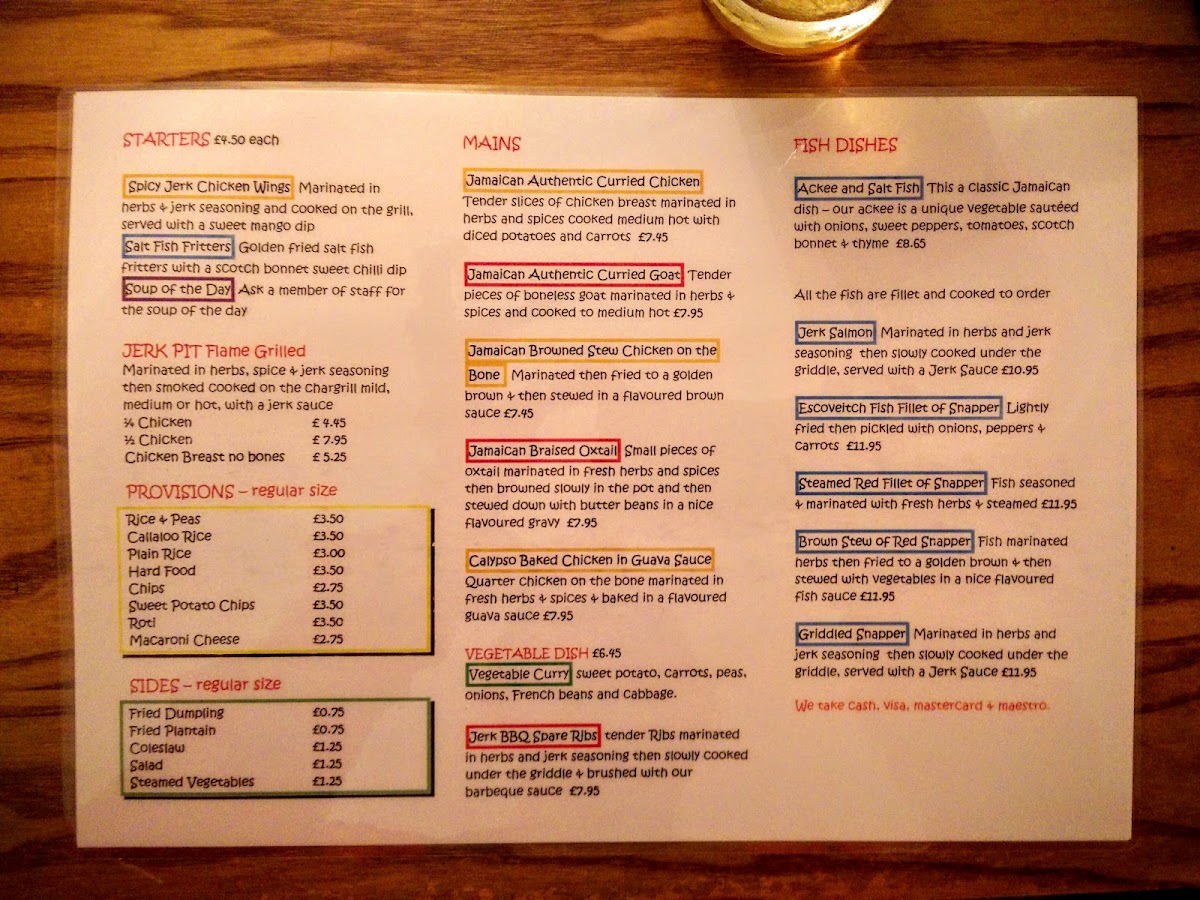 STARTERS £4.50 each
Spicy Jerk Chicken Wings Marinated in
herbs & jerk seasoning and cooked on the grill,
served with a sweet mango dip
Salt Fish Fritters Golden fried salt fish
fritters with a scotch bonnet sweet chilli dip
Soup of the Day Ask a member of staff for
the soup of the day
JERK PIT Flame Grilled
Marinated in herbs, spice & jerk seasoning
then smoked cooked on the chargrill mild,
medium or hot, with a jerk sauce
¼ Chicken £ 4.45
½ Chicken £ 7.95
Chicken Breast no bones £ 5.25
PROVISIONS – regular size
Rice & Peas £3.50
Callaloo Rice £3.50
Plain Rice £3.00
Hard Food £3.50
Chips £2.75
Sweet Potato Chips £3.50
Roti £3.50
Macaroni Cheese £2.75
SIDES – regular size
Fried Dumpling £0.75
Fried Plantain £0.75
Coleslaw £1.25
Salad £1.25
Steamed Vegetables £1.25
MAINS
Jamaican Authentic Curried Chicken
Tender slices of chicken breast marinated in
herbs and spices cooked medium hot with
diced potatoes and carrots £7.45
Jamaican Authentic Curried Goat Tender
pieces of boneless goat marinated in herbs &
spices and cooked to medium hot £7.95
Jamaican Browned Stew Chicken on the
Bone Marinated then fried to a golden
brown & then stewed in a flavoured brown
sauce £7.45
Jamaican Braised Oxtail Small pieces of
oxtail marinated in fresh herbs and spices
then browned slowly in the pot and then
stewed down with butter beans in a nice
flavoured gravy £7.95
Calypso Baked Chicken in Guava Sauce
Quarter chicken on the bone marinated in
fresh herbs & spices & baked in a flavoured
guava sauce £7.95
VEGETABLE DISH £6.45
Vegetable Curry sweet potato, carrots, peas,
onions, French beans and cabbage.
Jerk BBQ Spare Ribs tender Ribs marinated
in herbs and jerk seasoning then slowly cooked
under the griddle & brushed with our
barbeque sauce £7.95
FISH DISHES
Ackee and Salt Fish This a classic Jamaican
dish – our ackee is a unique vegetable sautéed
with onions, sweet peppers, tomatoes, scotch
bonnet & thyme £8.65
All the fish are fillet and cooked to order
Jerk Salmon Marinated in herbs and jerk
seasoning then slowly cooked under the
griddle, served with a Jerk Sauce £10.95
Escoveitch Fish Fillet of Snapper Lightly
fried then pickled with onions, peppers &
carrots £11.95
Steamed Red Fillet of Snapper Fish seasoned
& marinated with fresh herbs & steamed £11.95
Brown Stew of Red Snapper Fish marinated
herbs then fried to a golden brown & then
stewed with vegetables in a nice flavoured
fish sauce £11.95
Griddled Snapper Marinated in herbs and
jerk seasoning then slowly cooked under the
griddle, served with a Jerk Sauce £11.95
We take cash, visa, mastercard & maestro.